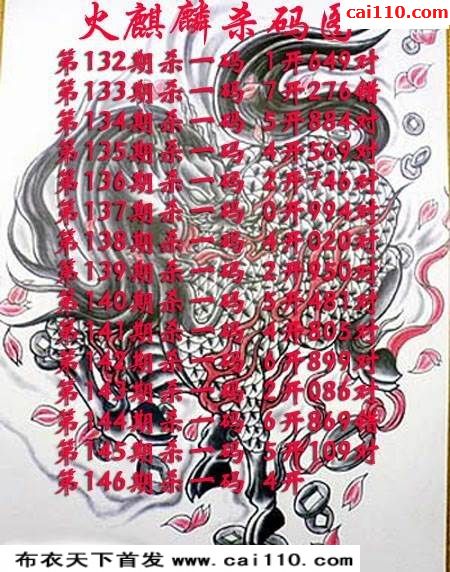 cai110.com
火麒麟杀码图
第132期杀一码 1开649对
第133期杀一码 7开276错
第134期杀一码 5开884对
第135期杀一码 4开569对
第136期杀一码 2开746对
第137期杀一码 0开994对
第138期杀一码 4开020对
第139期杀一码 2开950对
第140期杀一码 5开481对
第141期杀一码 4开805对
第142期杀一码 6开899对
第143期杀一码 2开086对
第144期杀一码 6开869错
第145期杀一码 5开109对
第146期杀一码 4开
布衣天下首发 www.cai110.com